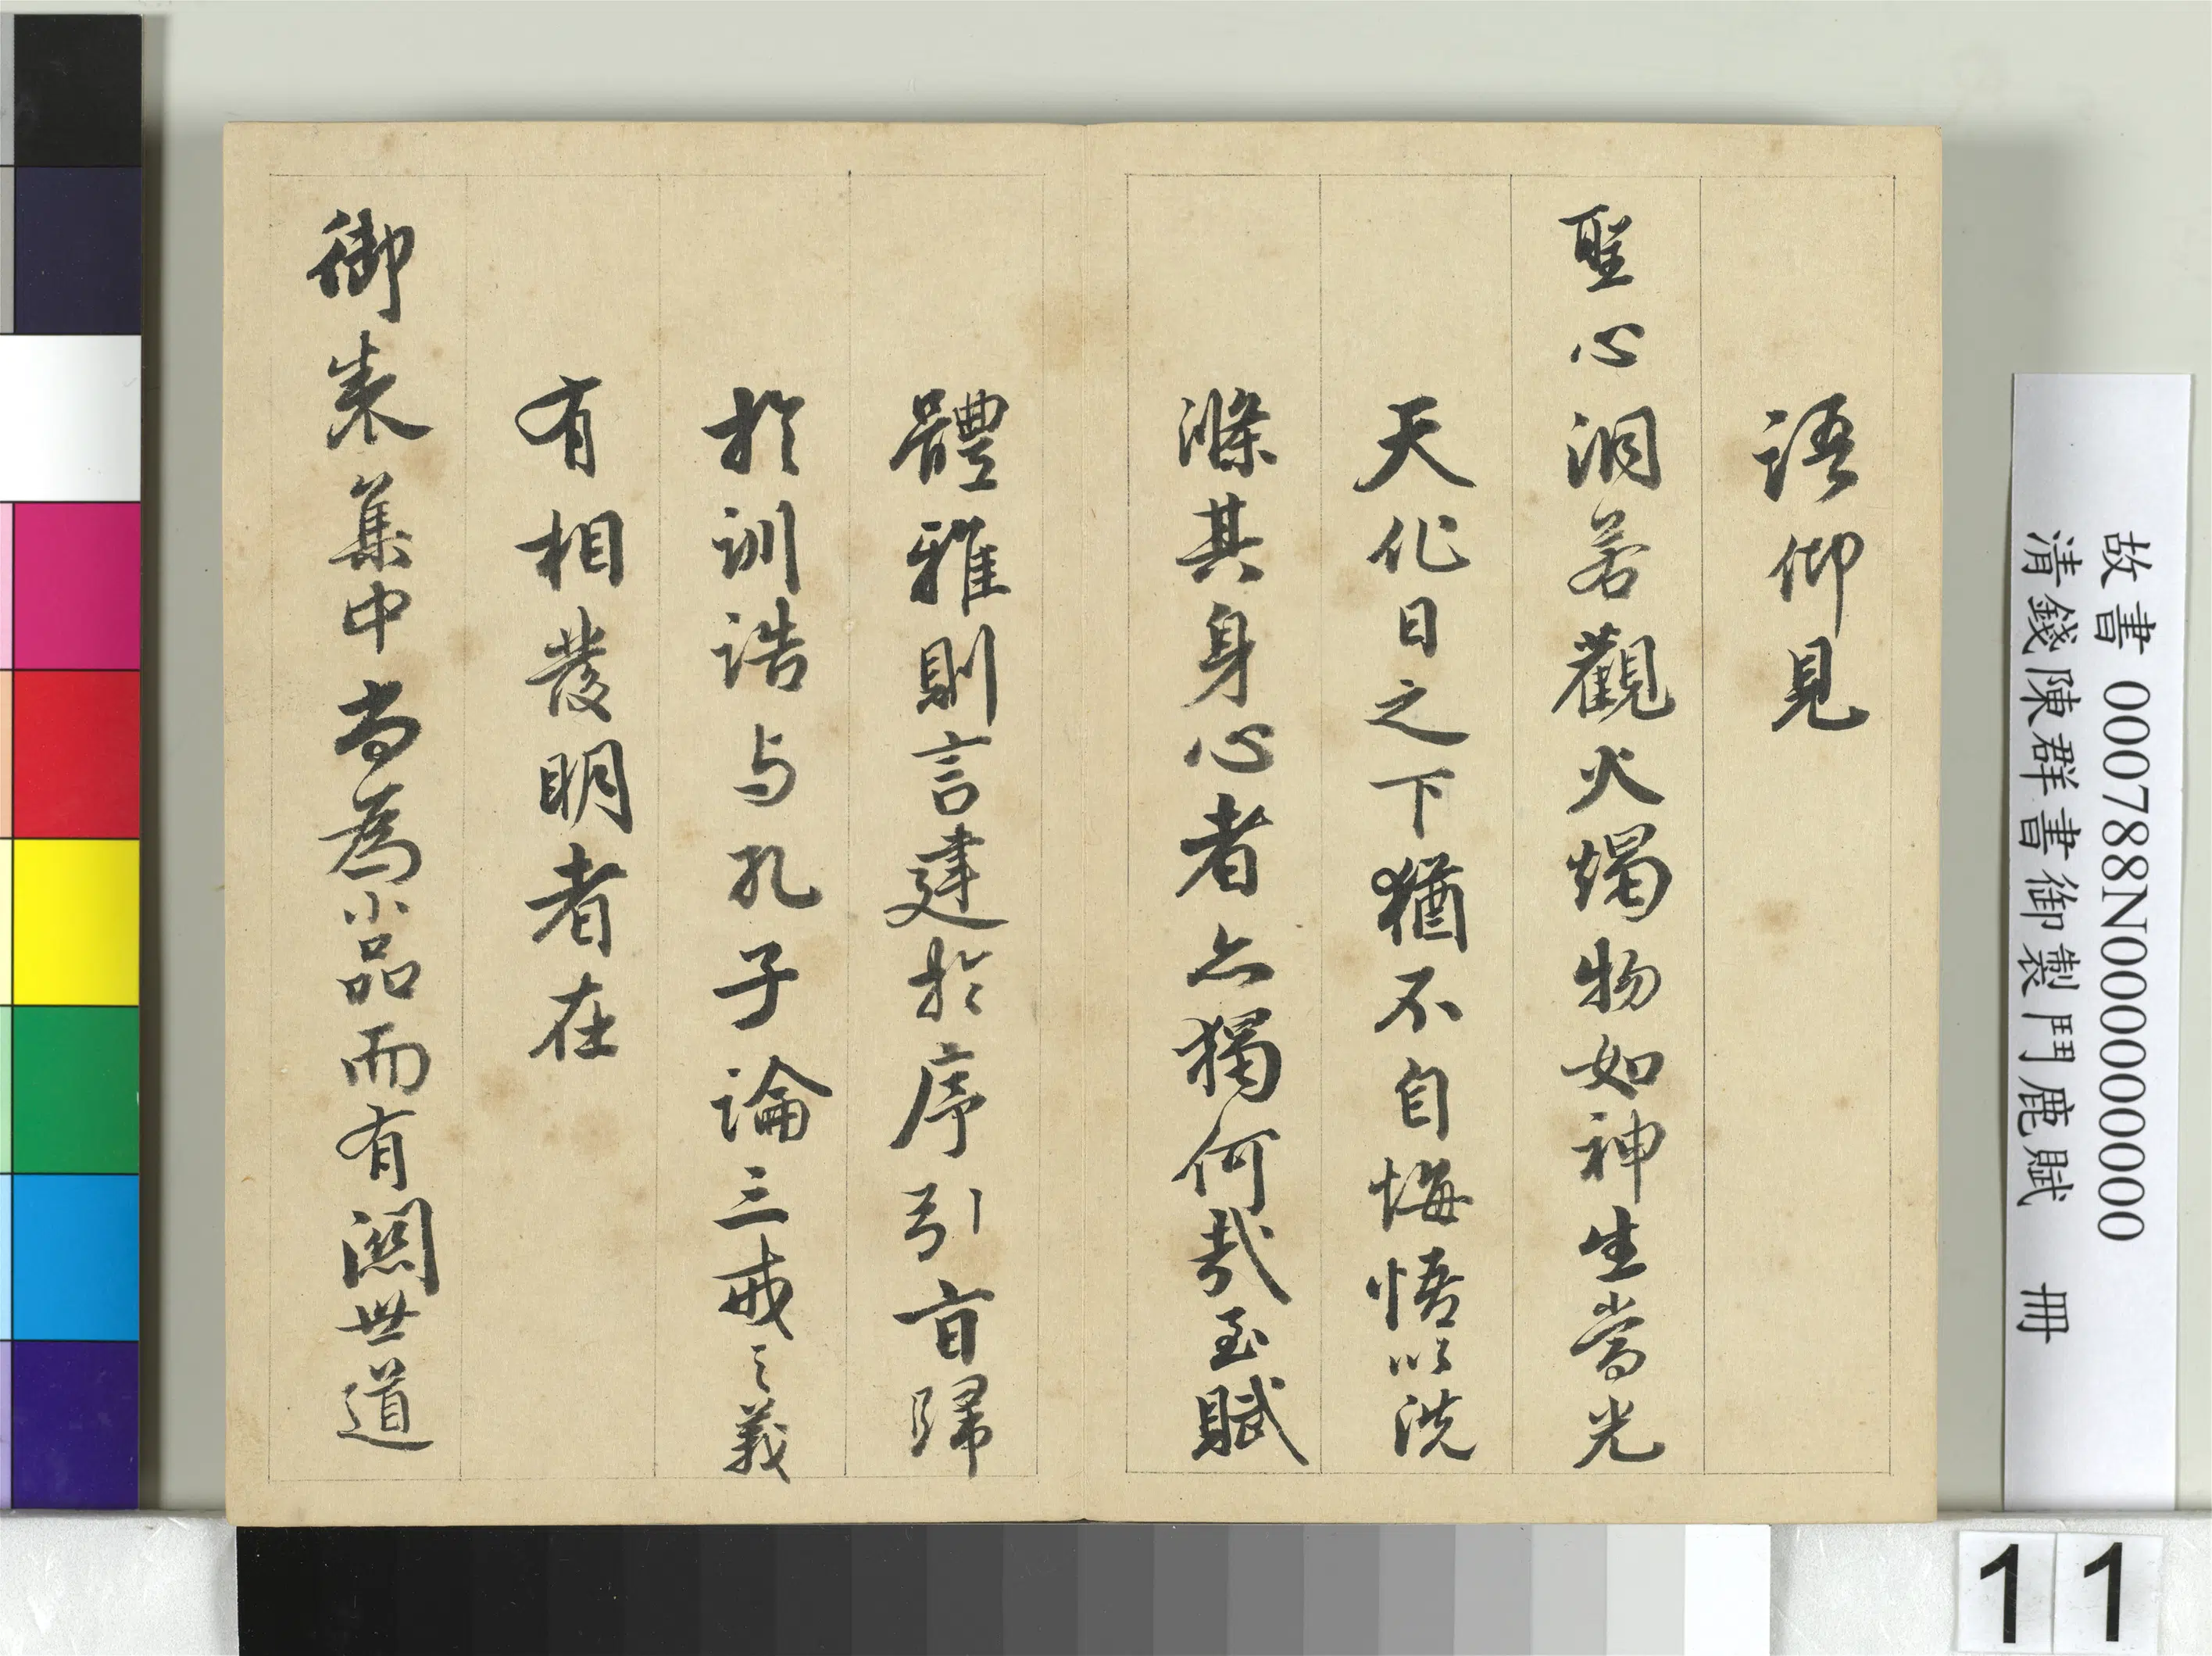 語仰見
聖心洞若觀火燭物如神生當光
天化日之下猶不自悔悟以洗
滌其身心者亦獨何哉至賦
體雅則言建於序引旨歸
於訓誥与孔子論三戒之義
有相發明者在
御製集中尚為小品而有關世道
故書 000788N000000000
清錢陳群書御製鬥鹿賦 冊
11